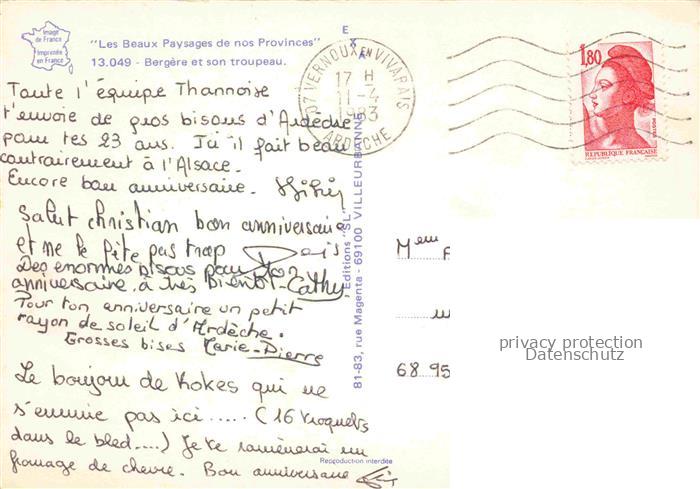 Image
de France
Imprimée
en France
"Les Beaux Paysages de nos Provinces"
13.049 - Bergère et son troupeau.
EXA
07 VERNOUX EN VIVARAIS
17 H
11-4
1983
ARDECHE
1,80
POSTES
REPUBLIQUE FRANÇAISE
Toute l'équipe Thannoise
t'envoie de gros bisous d'Ardèche
pour tes 23 ans. Ici il fait beau
contrairement à l'Alsace.
Encore bon anniversaire.
Salut christian bon anniversaire
et ne le fête pas trop
Des enormes bisous pour ton
anniversaire. à très bientôt - Cathy
Pour ton anniversaire un petit
rayon de soleil d'Ardèche.
Grosses bises Marie-Pierre
Le bonjour de Kokes qui ne
s'ennuie pas ici..... (16
dans le bled....) Je te ramènerai un
fromage de chevre. Bon anniversaire
Editions "SL"
81-83, rue Magenta - 69100 VILLEURBANNE
Reproduction interdite
Mem
68 95
privacy protection
Datenschutz